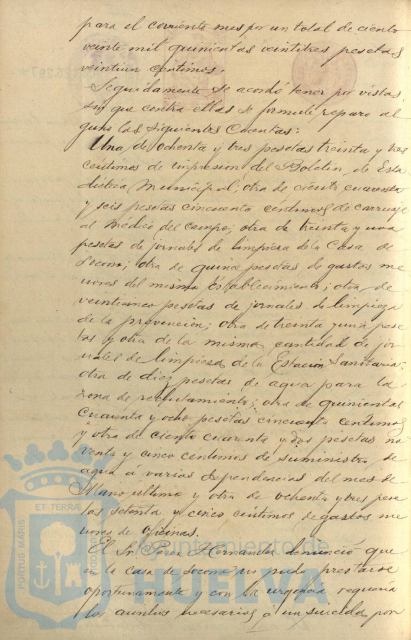 para el corriente mes por un total de ciento
veinte mil quinientas veintitres pesetas
veintiun centimos.
Seguidamente se acordó tener por vistas
sin que contra ellas se formule reparo al
guno las siguientes Cuentas:
Una de ochenta y tres pesetas treinta y tres
centimos de impresion del Boletin de Esta
distica Municipal; otra de ciento cuarenta
y seis pesetas cincuenta centimos de carruaje
al Médico del Campo; otra de treinta y una
pesetas de jornales de limpieza de la Casa de
Socorro; otra de quince pesetas de gastos me
nores del mismo Establecimiento; otra de
veinticinco pesetas de jornales de limpieza
de la prevencion; otra de treinta y una pese
tas y otra de la misma cantidad de jor
nales de limpieza de la Estacion Sanitaria;
otra de diez pesetas de agua para la
zona de reclutamiento; otra de quinientas
cuarenta y ocho pesetas cincuenta centimos
y otra de ciento cuarenta y dos pesetas no
venta y cinco centimos de suministro de
agua á varias dependencias del mes de
Mayo ultimo y otra de ochenta y tres pese
tas setenta y cinco centimos de gastos me
nores de oficinas.
El Sr. Hernandez denunció que
en la casa de socorro no pudo prestarse
oportunamente y con la urgencia requeria
los auxilios necesarios á un suicida por
PORTUS MARIS
ET TERRAE
Ayuntamiento de
HUELVA